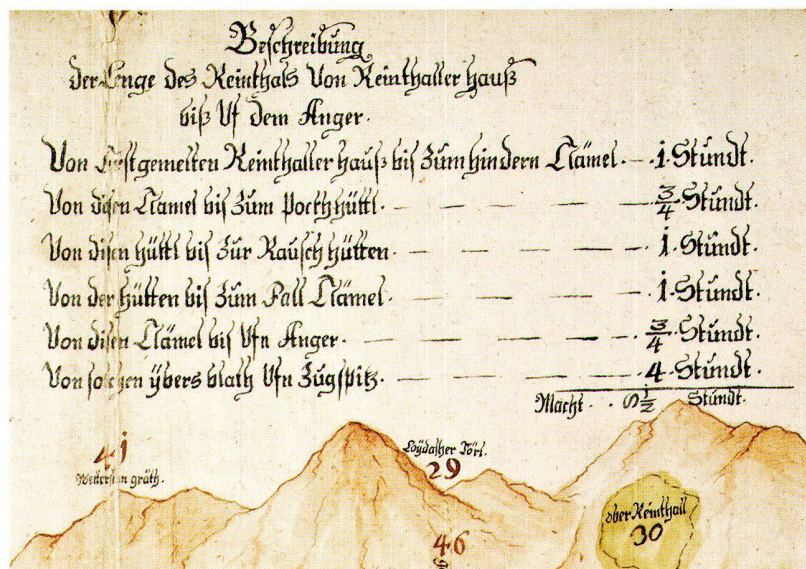 Beschreibung
der Enge des Reinthals Von Reinthaller hauß
biß Vf dem Anger.
Von Erstgemelten Reinthaller hauß bis Zum hindern Clämel. — 1. Stundt.
Von disen Clamel bis Zum Pockh hüttl. — — — — 3/4. Stundt.
Von disen hüttl bis Zur Rausch hütten. — — — — 1. Stundt.
Von der hütten bis Zum Fall Clämel. — — — — 1. Stundt.
Von disen Clämel bis Vfn Anger. — — — — 3/4. Stundt.
Von solchen ybers blath Vfn Zugspitz. — — — — 4. Stundt.
Macht. . 8 1/2 Stundt.
41
Wetterstein gräth.
Törl.
29
46
ober Reinthall
30